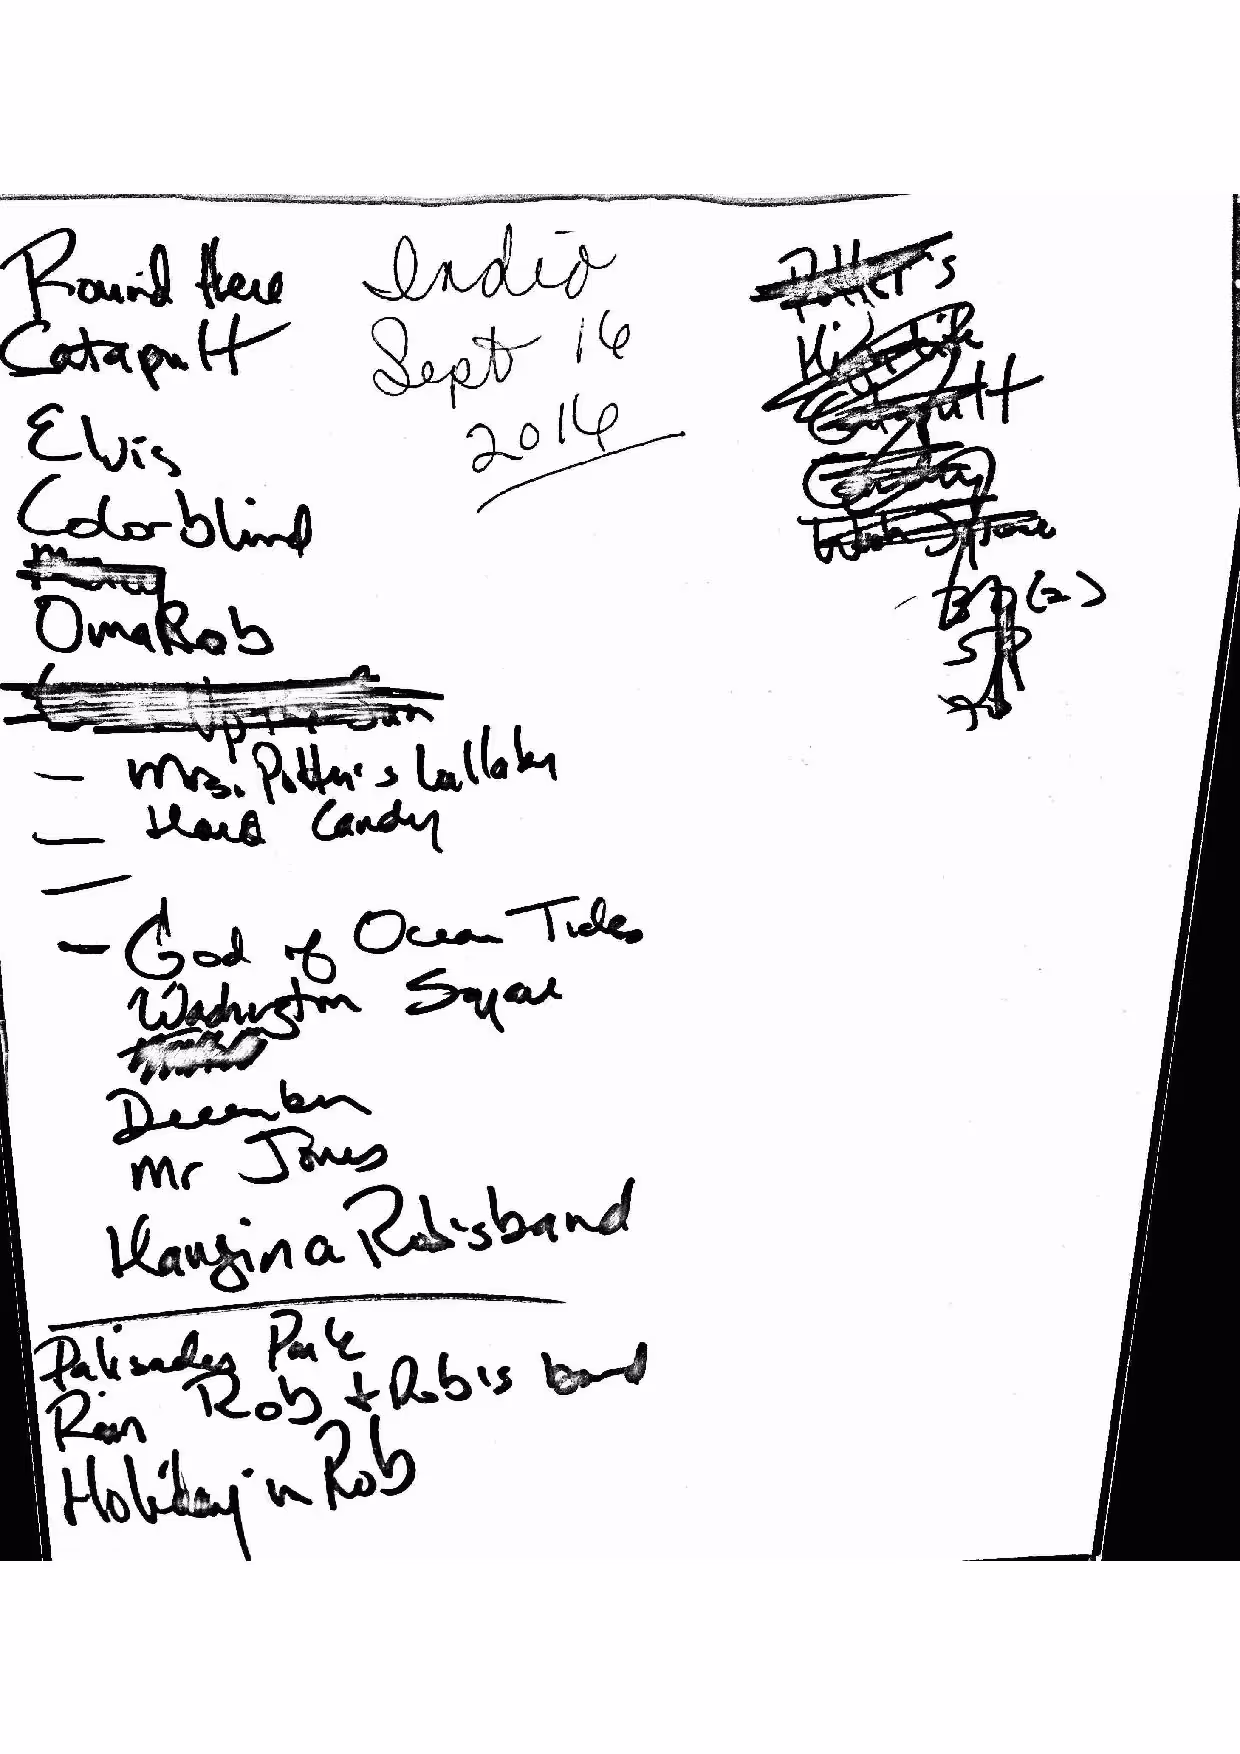 Round Here
Catapult
Elvis
Colorblind
OmaRob
Up The Sun
Mrs. Potter's Lullaby
Hard Candy
God of Ocean Tides
Washington Square
December
Mr Jones
Hangin a Rob's band
Palisades Park
Rain Rob + Rob's band
Holiday in Rob
Indio
Sept 16
2016
Potter's
Catapult
Candy
Wash Square
BD (2)
SP